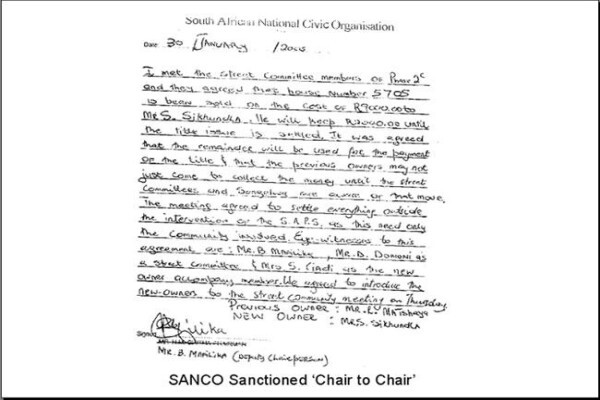 South African National Civic Organisation
Date 30 JANUARY /200
I met the street Committee members of Phase 2c
and they agreed that house number 5705
is been sold on the cost of R9000.00 to
MR S. Sikhundla. He will keep R2000.00 until
the title issue is settled. It was agreed
that the remainder will be used for the payment
of the title & that the previous owners may not
just come to collect the money until the street
Committees and are aware of that move.
The meeting agreed to settle everything outside
the intervention of the S.A.P.S. as this need only
the Community involved. Eye-witnesses to this
agreement are: Mr. B. Manilika, Mr. D. Domani as
a street committee & Mrs S. as the new
owner accompany member. We agreed to introduce the
new-owners to the street community meeting on Thursday
Previous Owner: MR. L.
NEW OWNER: MR.S. Sikhundla
MR. B. MANILIKA (DEPUTY CHAIRPERSON)
SANCO Sanctioned ‘Chair to Chair’